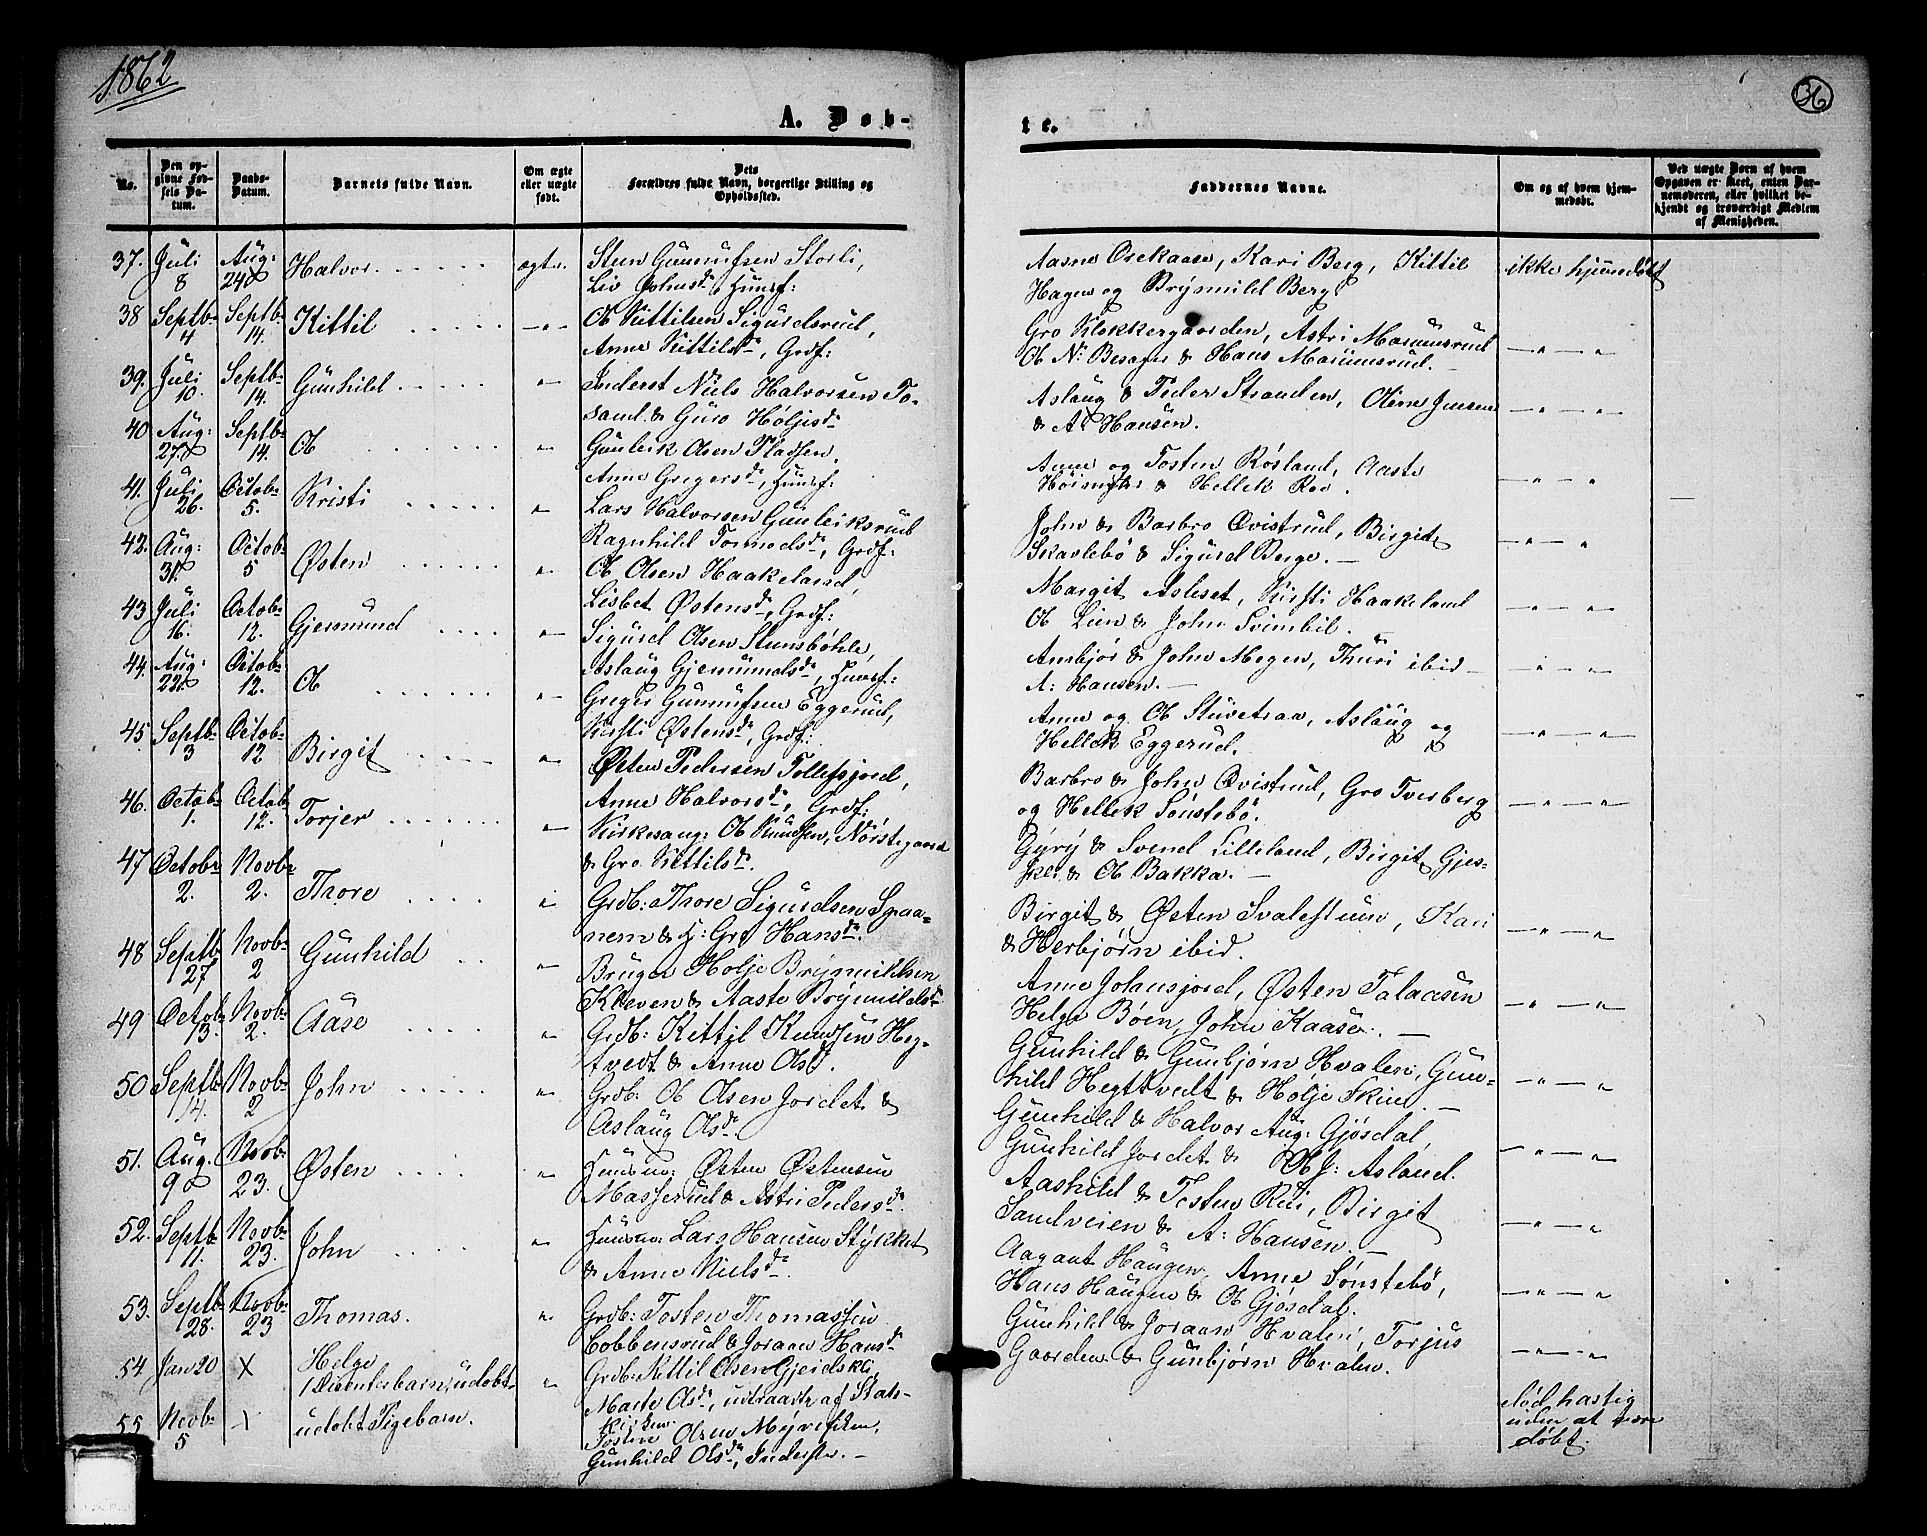 1862
36
A. Døb-
te.
No.
Den op-
givne Fød-
sels Da-
tum.
Daabs-
Datum.
Barnets fulde Navn.
Om ægte
eller uægte
født.
Dets
Forældres fulde Navn, borgerlige Stilling og
Opholdssted.
Faddernes Navne.
Om og af hvem hjem-
medøbt.
Ved uægte Børn af hvem
Opgaven er skeet, enten Bar-
nemoderen, eller hvilket be-
kjendt og troværdigt Medlem
af Menigheden.
37. Juli 8 Aug: 24de Halvor ægte. Sten Gunnufsen Storli,
Liv Johnsdr, Huusf:
Aasne Orekaase, Kari Berg, Kittil
Hagen og Brynnild Berg.
ikke hjemdøbt
38 Septbr 4 Septbr 14. Kittil — " — Ol Kittilsen Sigurdsrud,
Anne Kittilsdr, Grdf:
Gro Klokkergaarden, Astri
Ol N: Besager & Hans
— " — "
39. Juli 10. Septbr 14. Gunhild " — Inderst Niels Halvorsen To-
saml. & Guro Høljesdr
Aslaug & Peder Stranden, Oline Jensen
& A. Hansen.
— " — "
40 Aug: 27de Septbr 14. Ol " — Gunleik Olsen Pladsen,
Anne Gregersdr, Huusf:
Anne og Tosten Røsland, Aaste
Høimyr & Hellek Roe.
— " — "
41. Juli 26. Octob: 5. Kristi " — Lars Halvorsen Gunleiksrud
Ragnhild Tormodsdr, Grdf:
John & Barbro Qvistrud, Birgit
Skarlebø & Sigurd Berge. —
— " — "
42. Aug: 31. Octobr 5 Østen " — Ol Olsen Haakeland,
Lisbet Østensdr, Grdf:
Margit Asleset, Kirsti Haakeland
Ol Lien & John Svimbil. —
— " — "
43 Juli 16. Octobr 12. Gjermund " — Sigurd Olsen Stensbøhle,
Aslaug Gjermundsdr, Huusf:
Annbjør & John Megen, Thuri ibid —
A: Hansen. —
— " — "
44. Aug: 22de Octobr 12. Ol " — Greger Gunnufsen Eggerud,
Kirsti Østensdr, Grdf:
Anne og Ol Stuvetraa, Aslaug og
Hellek Eggerud.
— " — " —
45 Septbr 3 Octobr 12 Birgit " — Østen Pedersen Tollefsjord,
Anne Halvorsdr, Grdf:
Barbro & John Qvistrud, Gro Tverberg
og Hellek Sønstebø.
— " — " —
46. Octobr 1. Octobr 12. Torjer " — Kirkesang: Ol Knudsen, Nørstegaard
& Gro Kittilsdr.
Gyry & Svend Lilleland, Birgit Gjes-
& Ol Bakka. —
— " — " —
47 Octobr 2. Novbr 2. Thore " Grdb: Thore Sigurdsen Spaa-
nem & H: Gro Hansdr.
Birgit & Østen Svalestuen, Kari
& Herbjørn ibid.
— " — " —
48 Septbr 27 Novbr 2 Gunhild " — Bruger Holje Brynnildsen
Kleven & Aaste Brynnildsdr
Anne Johansjord, Østen Talaasen
Helge Bøen, John Kaasa. —
— " — "
49 Octobr 13. Novbr 2. Aase " — Grdb: Kittil Knudsen Heg-
tvedt & Anne Olsdr.
Gunhild & Gunbjørn Hvalen, Gun-
hild Hegttvedt & Hølje Skien. —
— " — "
50 Septbr 14. Novbr 2 John " — Grdb. Ol Olsen Jordet &
Aslaug Olsdr.
Gunhild & Halvor Aug: Gjøsdal,
Gunhild Jordet & Ol J: Asland.
— " — " —
51. Aug. 9de Novb. 23. Østen " — Huusm: Østen Østensen
Masserud & Astri Pedersdr.
Aashild & Tosten Rui, Birgit
Sandveien & A: Hansen. —
— " — "
52. Septbr 11. Novbr 23. John " — Huusm: Lars Hansen Stykket
& Anne Nielsdr.
Aagaat Haugen, Anne Sønstebø,
Hans Haugen & Ol Gjøsdal.
— " — "
53. Septbr 28. Novbr 23 Thomas. " — Grdb: Tosten Thomassen
Bobbensrud & Joraan Hansdr
Gunhild & Joraan Hvalen, Torjus
Gaarden & Gunbjørn Hvalen.
— " — " —
54 Jan 20 X Helge
(Dissenterbarn), udøbt " — Grdb: Kittil Olsen Gjeidskli,
Marte Olsdr, udtraadte af Stats-
kirken.
55 Novbr 5 X udøbt Pigebarn. Tosten Olsen Myrekken,
Gunhild Olsdr, Inderster. —
død hastig
uden at være
døbt.